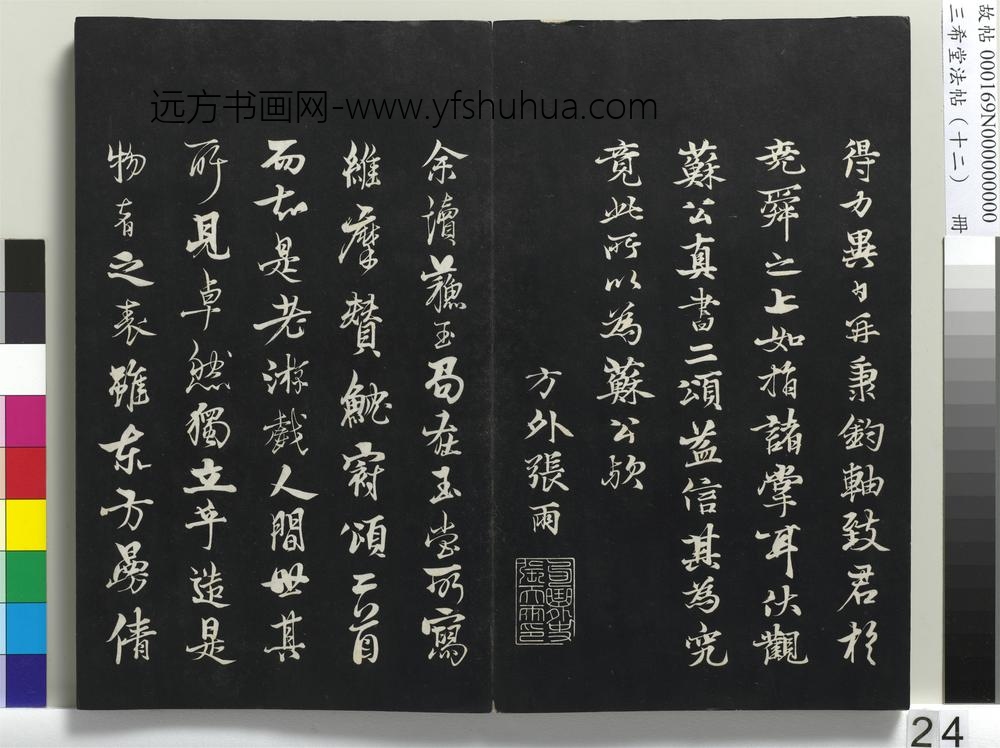 得力異日再秉鈞軸致君於
堯舜之上如指諸掌耳伏觀
蘇公真書二頌益信其為究
竟此所以為蘇公歟
方外張雨
余讀蘇玉局在玉堂所寫
維摩贊魷冠頌二首
而知是老游戲人間世其
所見卓然獨立乎造是
物者之表雖東方曼倩
远方书画网-www.yfshuhua.com
故帖 000169N000000000
三希堂法帖（十二） 冊
24